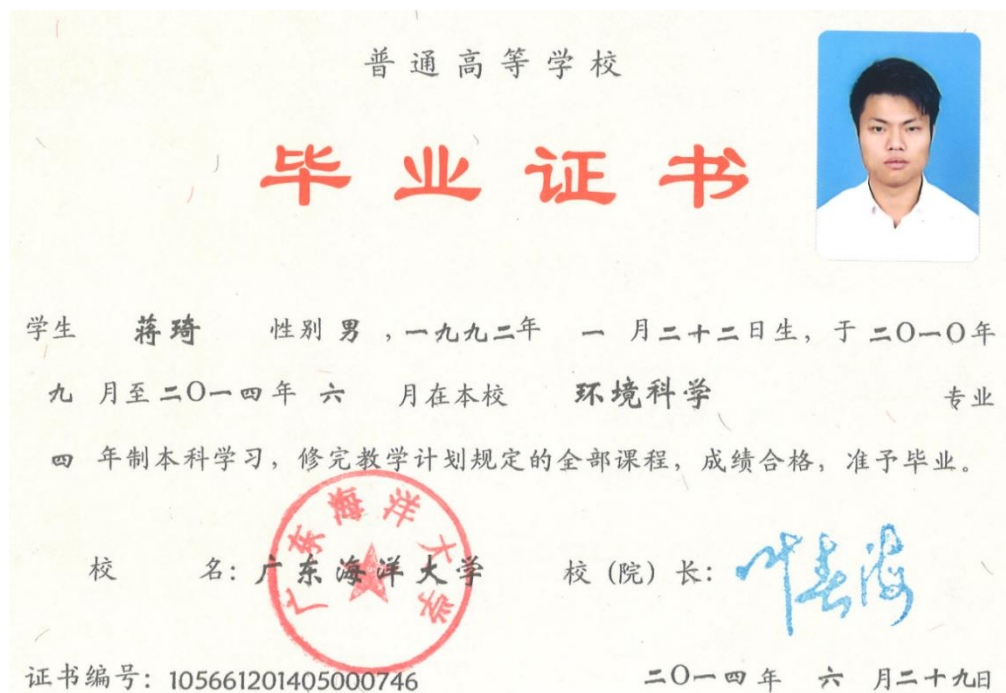 普通高等学校
毕业证书
学生 蒋琦 性别 男 ，一九九二年 一 月二十二日生，于 二〇一〇年
九 月至二〇一四年 六 月在本校 环境科学 专业
四 年制本科学习，修完教学计划规定的全部课程，成绩合格，准予毕业。
校 名：广东海洋大学 校（院）长：叶春海
广东海洋大学
证书编号：105661201405000746 二〇一四年 六 月二十九日